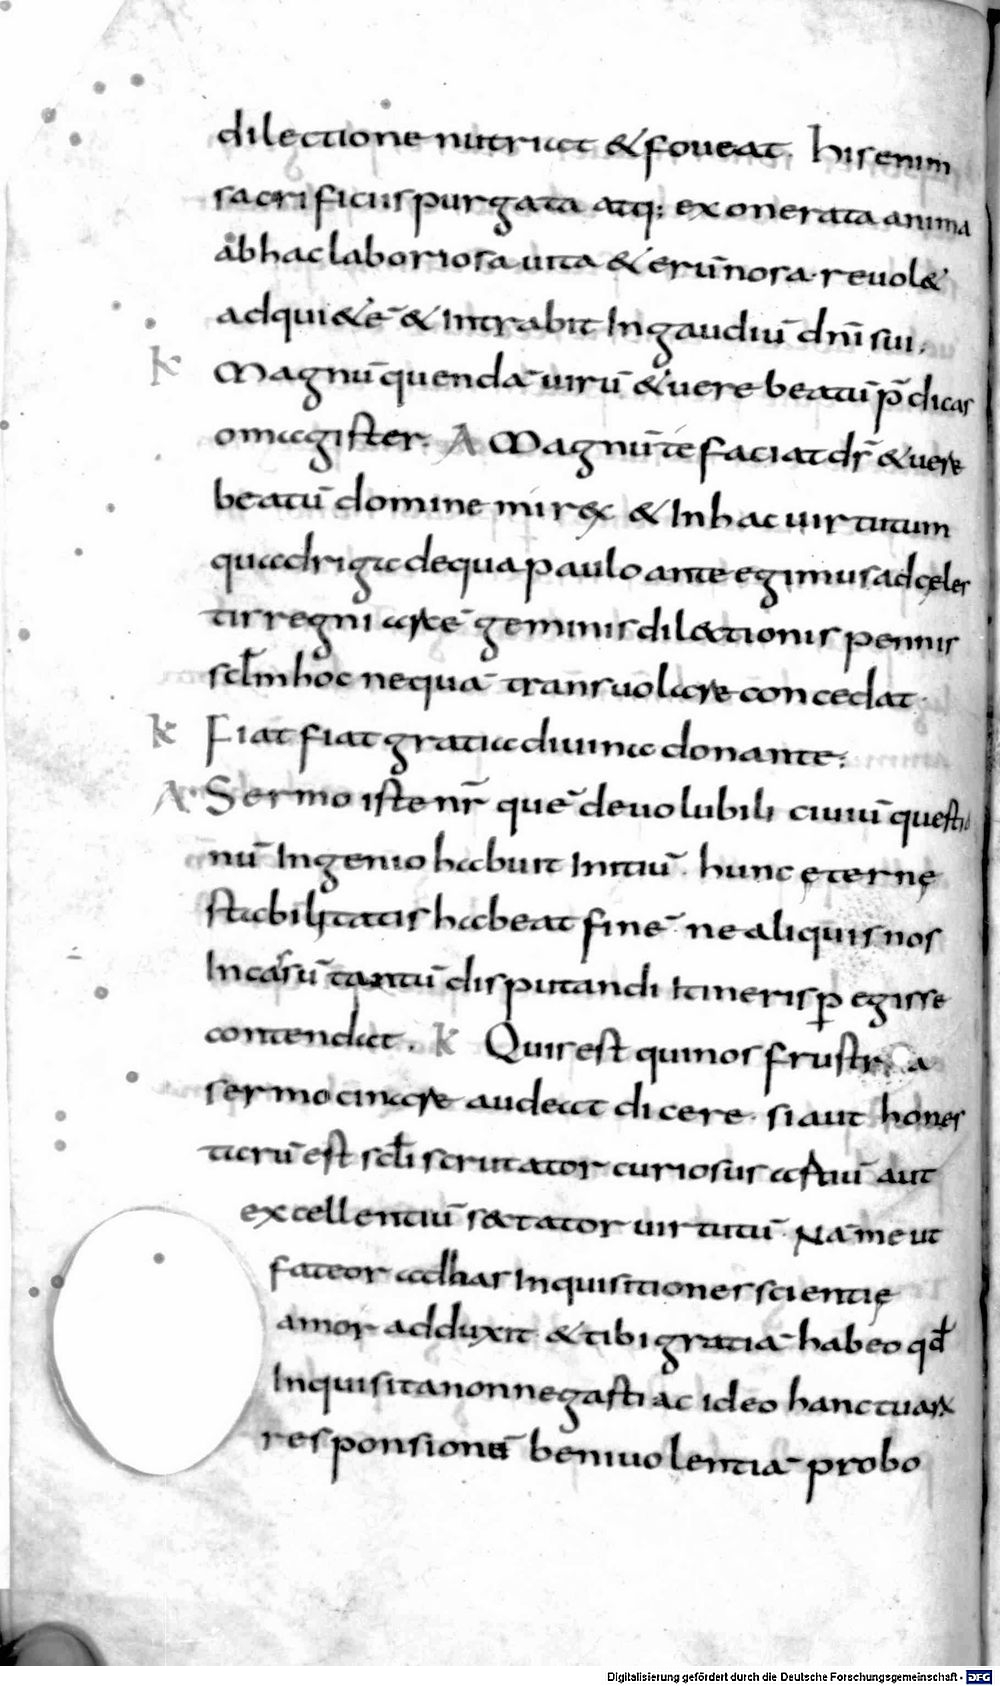 dilectione nutriat & foueat. his enim
sacrificiis purgata atq; exonerata anima
ab hac laboriosa uita & erūnosa reuol&
ad qui&ē & intrabit in gaudiū dn̄i sui.
K Magnū quendā uirū & uere beatū p̄dicas
o magister. A Magnū te faciat d̄s & uere
beatū domine mi rex & in hac uirtutum
quadriga de qua paulo ante egimus ad cęles
tis regni arcē geminis dilectionis pennis
sclm hoc nequā transuolare concedat
K Fiat fiat gratia diuina donante.
A Sermo iste nr̄ quē de uolubili ciuiliū questio
nū ingenio habuit initiū. hunc ęternę
stabilitatis habeat finē ne aliquis nos
incasū tantū disputandi itineris p egisse
contendat. K Quis est qui nos frustra
sermocinare audeat dicere. si aut hones
tarū est scli scrutator curiosus artiū aut
excellentiū sectator uirtutū. Nā me ut
fateor ad has inquisitiones scientię
amor adduxit & tibi gratiā habeo qđ
inquisita non negasti ac ideo hanc tuarx
responsionū beniuolentiā probo
Digitalisierung gefördert durch die Deutsche Forschungsgemeinschaft - DFG